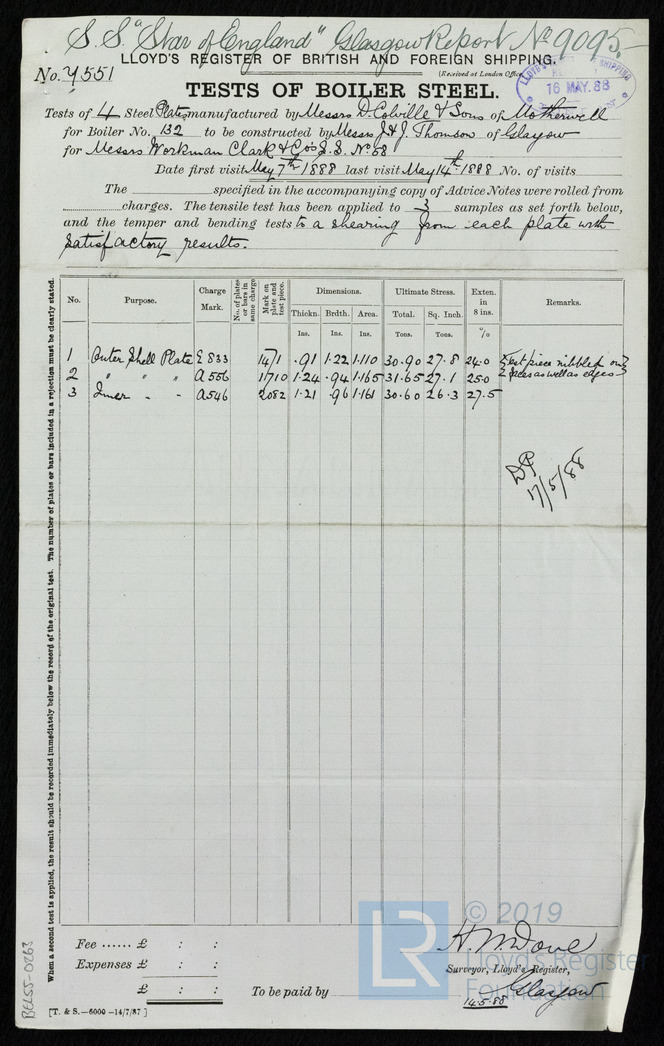 S.S. "Star of England" Glasgow Report No 9095.
LLOYD'S REGISTER OF BRITISH AND FOREIGN SHIPPING.
No. 4551
(Received at London Office
16 MAY. 88
TESTS OF BOILER STEEL.
Tests of 4 Steel Plates manufactured by Messrs D. Colville & Sons of Motherwell
for Boiler No. 132 to be constructed by Messrs J & J. Thomson of Glasgow
for Messrs Workman Clark & Co's S.S. No 58
Date first visit May 7th 1888 last visit May 14th 1888 No. of visits
The specified in the accompanying copy of Advice Notes were rolled from
charges. The tensile test has been applied to 3 samples as set forth below,
and the temper and bending tests to a shearing from each plate with
satisfactory results.
When a second test is applied, the result should be recorded immediately below the record of the original test. The number of plates or bars included in a rejection must be clearly stated.
No. Purpose. Charge Mark. No. of plates or bars in same charge Mark on plate and test piece. Dimensions. Ultimate Stress. Exten. in 8 ins. Remarks.
Thickn. Brdth. Area. Total. Sq. Inch.
Ins. Ins. Ins. Tons. Tons. %
1 Outer Shell Plate E 833 1471 .91 1.22 1.110 30.90 27.8 24.0 Test piece nibbled on
2 " " " A 556 1710 1.24 .94 1.165 31.65 27.1 25.0 faces as well as edges
3 Inner " " A 546 2082 1.21 .96 1.161 30.60 26.3 27.5
DP
17/5/88
Fee ...... £ : :
Expenses £ : :
£ : :
To be paid by
Surveyor, Lloyd's Register,
Glasgow
14.5.88
[T. & S.—6000—14/7/87]
BEL55-0263
LR
© 2019
Lloyd's Register
Foundation